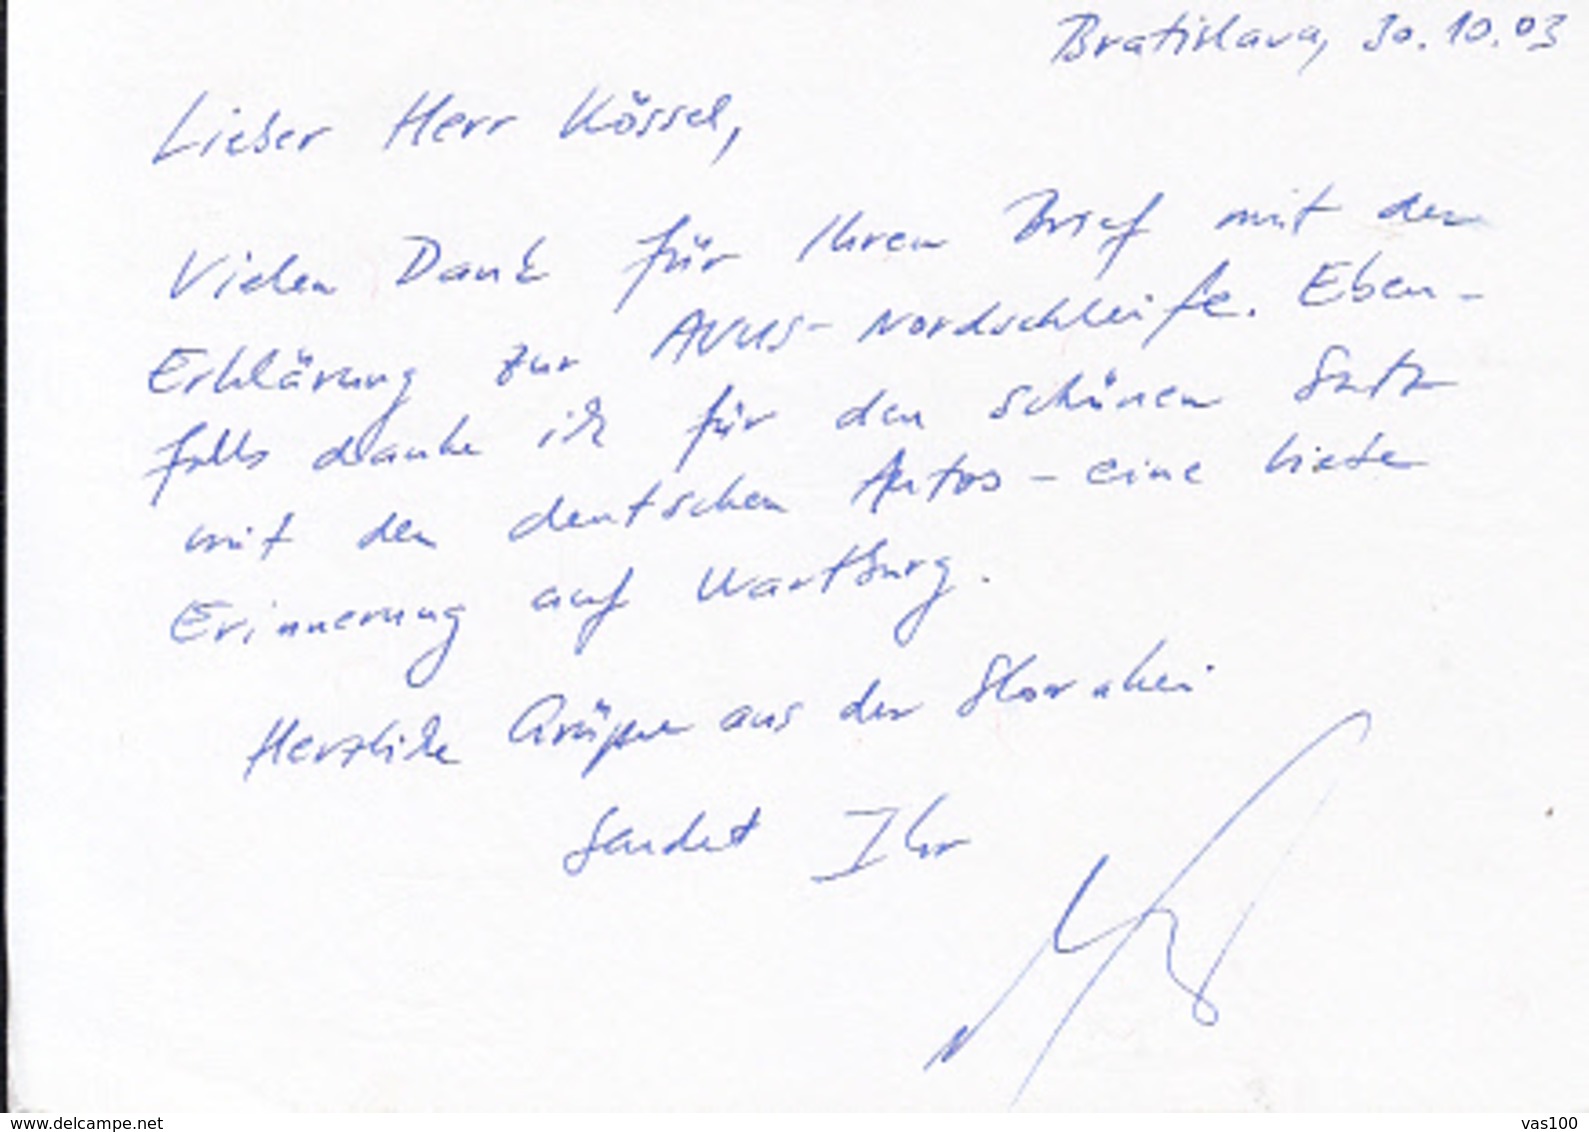 Bratislava, 30.10.03
Lieber Herr Kössel,
Vielen Dank für Ihren Brief mit der
Erklärung zur AVUS-Nordschleife. Eben-
falls danke ich für den schönen Satz
mit den deutschen Autos - eine liebe
Erinnerung auf Wartburg.
Herzliche Grüße aus der Slowakei
sendet Ihr
www.delcampe.net
vas100